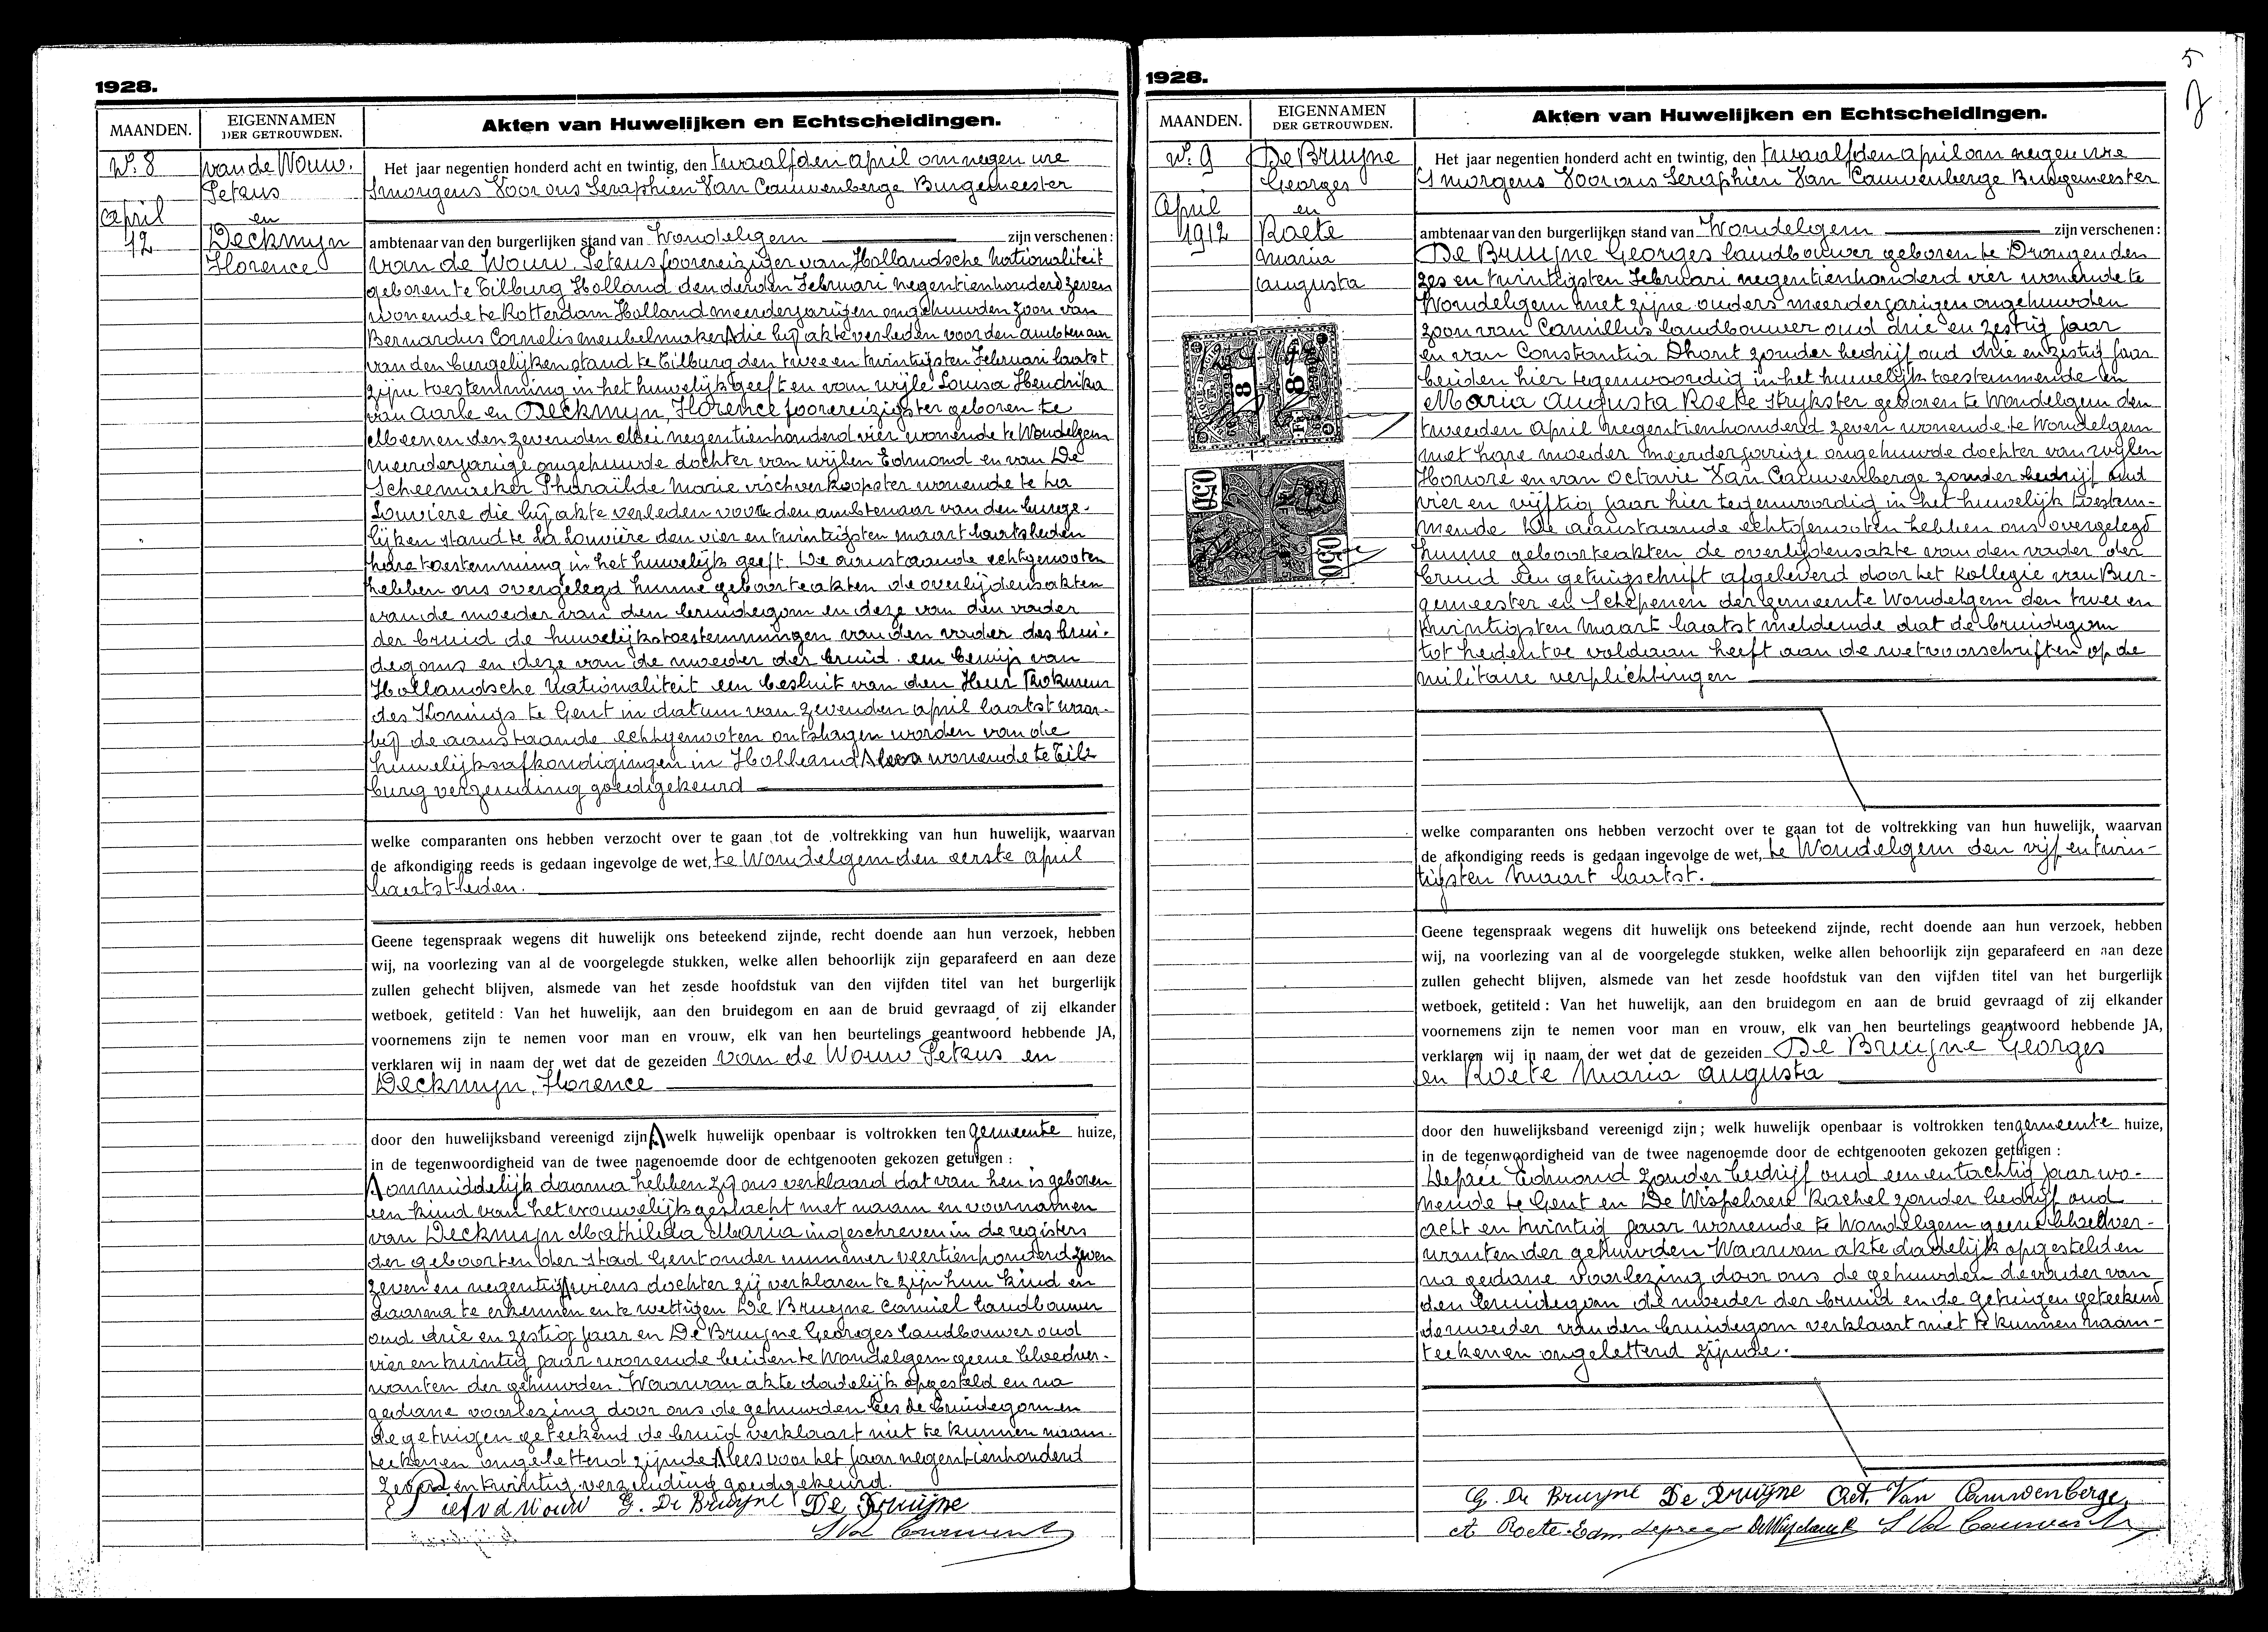 1928.
MAANDEN.
EIGENNAMEN
DER GETROUWDEN.
Akten van Huwelijken en Echtscheidingen.
N. 8
van de Wouw.
Petrus
April
en
12
Deckmyn
Florence
Het jaar negentien honderd acht en twintig, den twaalfden april om negen ure
Smorgens Voor ons Seraphien Van Cauwenberge Burgemeester
ambtenaar van den burgerlijken stand van Wondelgem zijn verschenen:
van de Wouw, Petrus foorereiziger van Hollandsche Nationaliteit
geboren te Tilburg Holland den derden Februari negentienhonderd zeven
wonende te Rotterdam Holland meerderjarigen ongehuwden zoon van
Bernardus Cornelis meubelmaker die bij akte verleden voor den ambtenaar
van den burgelijken stand te Tilburg den twee en twintigsten Februari laatst
zijne toestemming in het huwelijk geeft en van wijle Louisa Hendrika
van Aarle en Deckmyn, Florence foorereizigster geboren te
Meenen den zevenden Mei negentienhonderd vier wonende te Wondelgem
meerderjarige ongehuwde dochter van wijlen Edmond en van De
Scheemaeker Pharaïlde Marie vischverkoopster wonende te La
Louvière die bij akte verleden voor den ambtenaar van den burge-
lijken stand te La Louvière den vier en twintigsten maart laatstleden
hare toestemming in het huwelijk geeft. De aanstaande echtgenooten
hebben ons overgelegd hunne geboorteakten de overlijdensakten
van de moeder van den bruidegom en deze van den vader
der bruid de huwelijkstoestemmingen van den vader des brui-
degoms en deze van de moeder der bruid. een bewijs van
Hollandsche Nationaliteit een besluit van den Heer Prokureur
des Konings te Gent in datum van zevenden april laatst waar-
bij de aanstaande echtgenooten ontslagen worden van die
huwelijksafkondigingen in Holland wonende te Til
burg verzending goedgekeurd
welke comparanten ons hebben verzocht over te gaan tot de voltrekking van hun huwelijk, waarvan
de afkondiging reeds is gedaan ingevolge de wet, te Wondelgem den eerste april
laatstleden.
Geene tegenspraak wegens dit huwelijk ons beteekend zijnde, recht doende aan hun verzoek, hebben
wij, na voorlezing van al de voorgelegde stukken, welke allen behoorlijk zijn geparafeerd en aan deze
zullen gehecht blijven, alsmede van het zesde hoofdstuk van den vijfden titel van het burgerlijk
wetboek, getiteld: Van het huwelijk, aan den bruidegom en aan de bruid gevraagd of zij elkander
voornemens zijn te nemen voor man en vrouw, elk van hen beurtelings geantwoord hebbende JA,
verklaren wij in naam der wet dat de gezeiden van de Wouw Petrus en
Deckmyn, Florence
door den huwelijksband vereenigd zijn welk huwelijk openbaar is voltrokken ten gemeente huize,
in de tegenwoordigheid van de twee nagenoemde door de echtgenooten gekozen getuigen:
onmiddelijk daarna hebben zij ons verklaard dat van hen is geboren
een kind van het vrouwelijk geslacht met naam en voornamen
van Deckmyn Mathilda Maria ingeschreven in de registers
der geboorten der stad Gent onder nummer veertienhonderd zeven
zeven en negentig wiens dochter zij verklaren te zijn hun kind en
daarna te erkennen en te wettigen De Bruyne Camiel landbouwer
oud drie en zestig jaar en De Bruyne Georges landbouwer oud
vier en twintig jaar wonende beiden te Wondelgem geene bloedver-
wanten der gehuwden. Waarvan akte dadelijk opgesteld en na
gedane voorlezing door ons de gehuwden lees de bruidegom en
de getuigen geteekend de bruid verklaart niet te kunnen naam-
teekenen ongeletterd zijnde lees voor het jaar negentienhonderd
zeven en twintig verzending goedgekeurd.
vd Wouw G. De Bruyne De Bruijne
1928.
5
MAANDEN.
EIGENNAMEN
DER GETROUWDEN.
Akten van Huwelijken en Echtscheidingen.
N. 9
De Bruyne
Georges
April
en
1912
Roete
Maria
Augusta
Het jaar negentien honderd acht en twintig, den twaalfden april om negen ure
Smorgens Voor ons Seraphien Van Cauwenberge Burgemeester
ambtenaar van den burgerlijken stand van Wondelgem zijn verschenen:
De Bruyne Georges landbouwer geboren te Drongen den
zes en twintigsten Februari negentienhonderd vier wonende te
Wondelgem met zijne ouders meerderjarigen ongehuwden
zoon van Camillus landbouwer oud drie en zestig jaar
en van Constantia Dhont zonder bedrijf oud drie en zestig jaar
beiden hier tegenwoordig in het huwelijk toestemmende en
Maria Augusta Roete strykster geboren te Wondelgem den
tweeden april negentienhonderd zeven wonende te Wondelgem
met hare moeder meerderjarige ongehuwde dochter van wijlen
Honoré en van Octavie Van Cauwenberge zonder bedrijf oud
vier en vijftig jaar hier tegenwoordig in het huwelijk toestem-
mende De aanstaande echtgenooten hebben ons overgelegd
hunne geboorteakten de overlijdensakte van den vader der
bruid een getuigschrift afgeleverd door het Kollegie van Bur-
gemeester en Schepenen der gemeente Wondelgem den twee en
twintigsten Maart laatst meldende dat de bruidegom
tot heden toe voldaan heeft aan de wetvoorschriften op de
militaire verplichtingen
8
8
050
050
welke comparanten ons hebben verzocht over te gaan tot de voltrekking van hun huwelijk, waarvan
de afkondiging reeds is gedaan ingevolge de wet, te Wondelgem den vijf en twin-
tigsten Maart laatst.
Geene tegenspraak wegens dit huwelijk ons beteekend zijnde, recht doende aan hun verzoek, hebben
wij, na voorlezing van al de voorgelegde stukken, welke allen behoorlijk zijn geparafeerd en aan deze
zullen gehecht blijven, alsmede van het zesde hoofdstuk van den vijfden titel van het burgerlijk
wetboek, getiteld: Van het huwelijk, aan den bruidegom en aan de bruid gevraagd of zij elkander
voornemens zijn te nemen voor man en vrouw, elk van hen beurtelings geantwoord hebbende JA,
verklaren wij in naam der wet dat de gezeiden De Bruyne Georges
en Roete Maria Augusta
door den huwelijksband vereenigd zijn; welk huwelijk openbaar is voltrokken ten gemeente huize,
in de tegenwoordigheid van de twee nagenoemde door de echtgenooten gekozen getuigen:
Deprée Edmond zonder bedrijf oud een en tachtig jaar wo-
nende te Gent en De Wispelaere Rachel zonder bedrijf oud
acht en twintig jaar wonende te Wondelgem geene bloedver-
wanten der gehuwden Waarvan akte dadelijk opgesteld en
na gedane voorlezing door ons de gehuwden de vader van
den bruidegom de moeder der bruid en de getuigen geteekend
de moeder van den bruidegom verklaart niet te kunnen naam-
teekenen ongeletterd zijnde.
G. De Bruyne De Bruijne Oct. Van Cauwenberge
A Roete Edm Depree